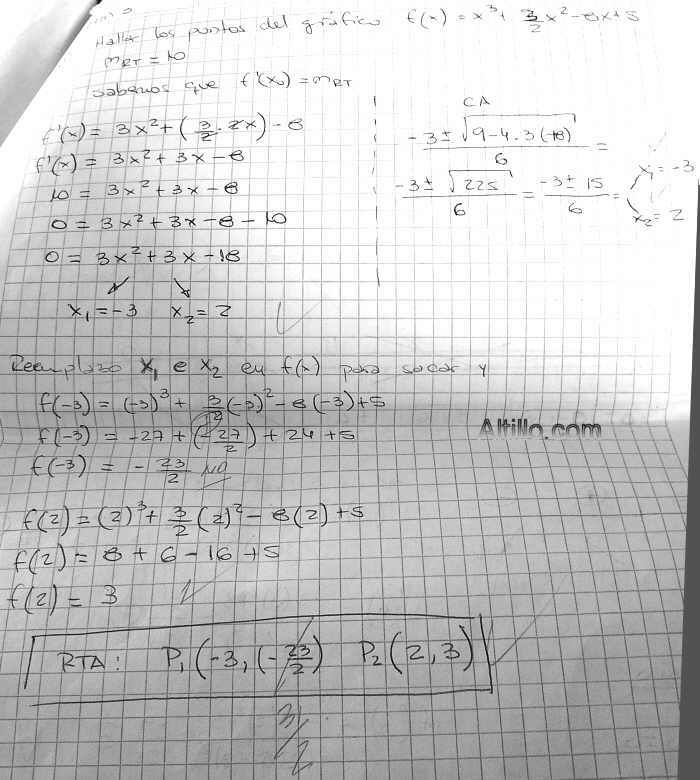 Hallar los puntos del gráfico f(x) = x³ + 3/2 x² - 8x + 5
m RT = 10
Sabemos que f'(x₀) = m RT
f'(x) = 3x² + (3/2 · 2x) - 8
f'(x) = 3x² + 3x - 8
10 = 3x² + 3x - 8
0 = 3x² + 3x - 8 - 10
0 = 3x² + 3x - 18
x₁ = -3 x₂ = 2
CA
-3 ± √9 - 4 · 3 (-18) / 6 =
-3 ± √225 / 6 = -3 ± 15 / 6 = x₁ = -3
x₂ = 2
Reemplazo x₁ e x₂ en f(x) para sacar y
f(-3) = (-3)³ + 3/2 (-3)² - 8 (-3) + 5
f(-3) = -27 + (-27/2) + 24 + 5
f(-3) = - 23/2 no
Altillo.com
f(2) = (2)³ + 3/2 (2)² - 8 (2) + 5
f(2) = 8 + 6 - 16 + 5
f(2) = 3
RTA: P₁ (-3, (-23/2) P₂ (2, 3)
31/2